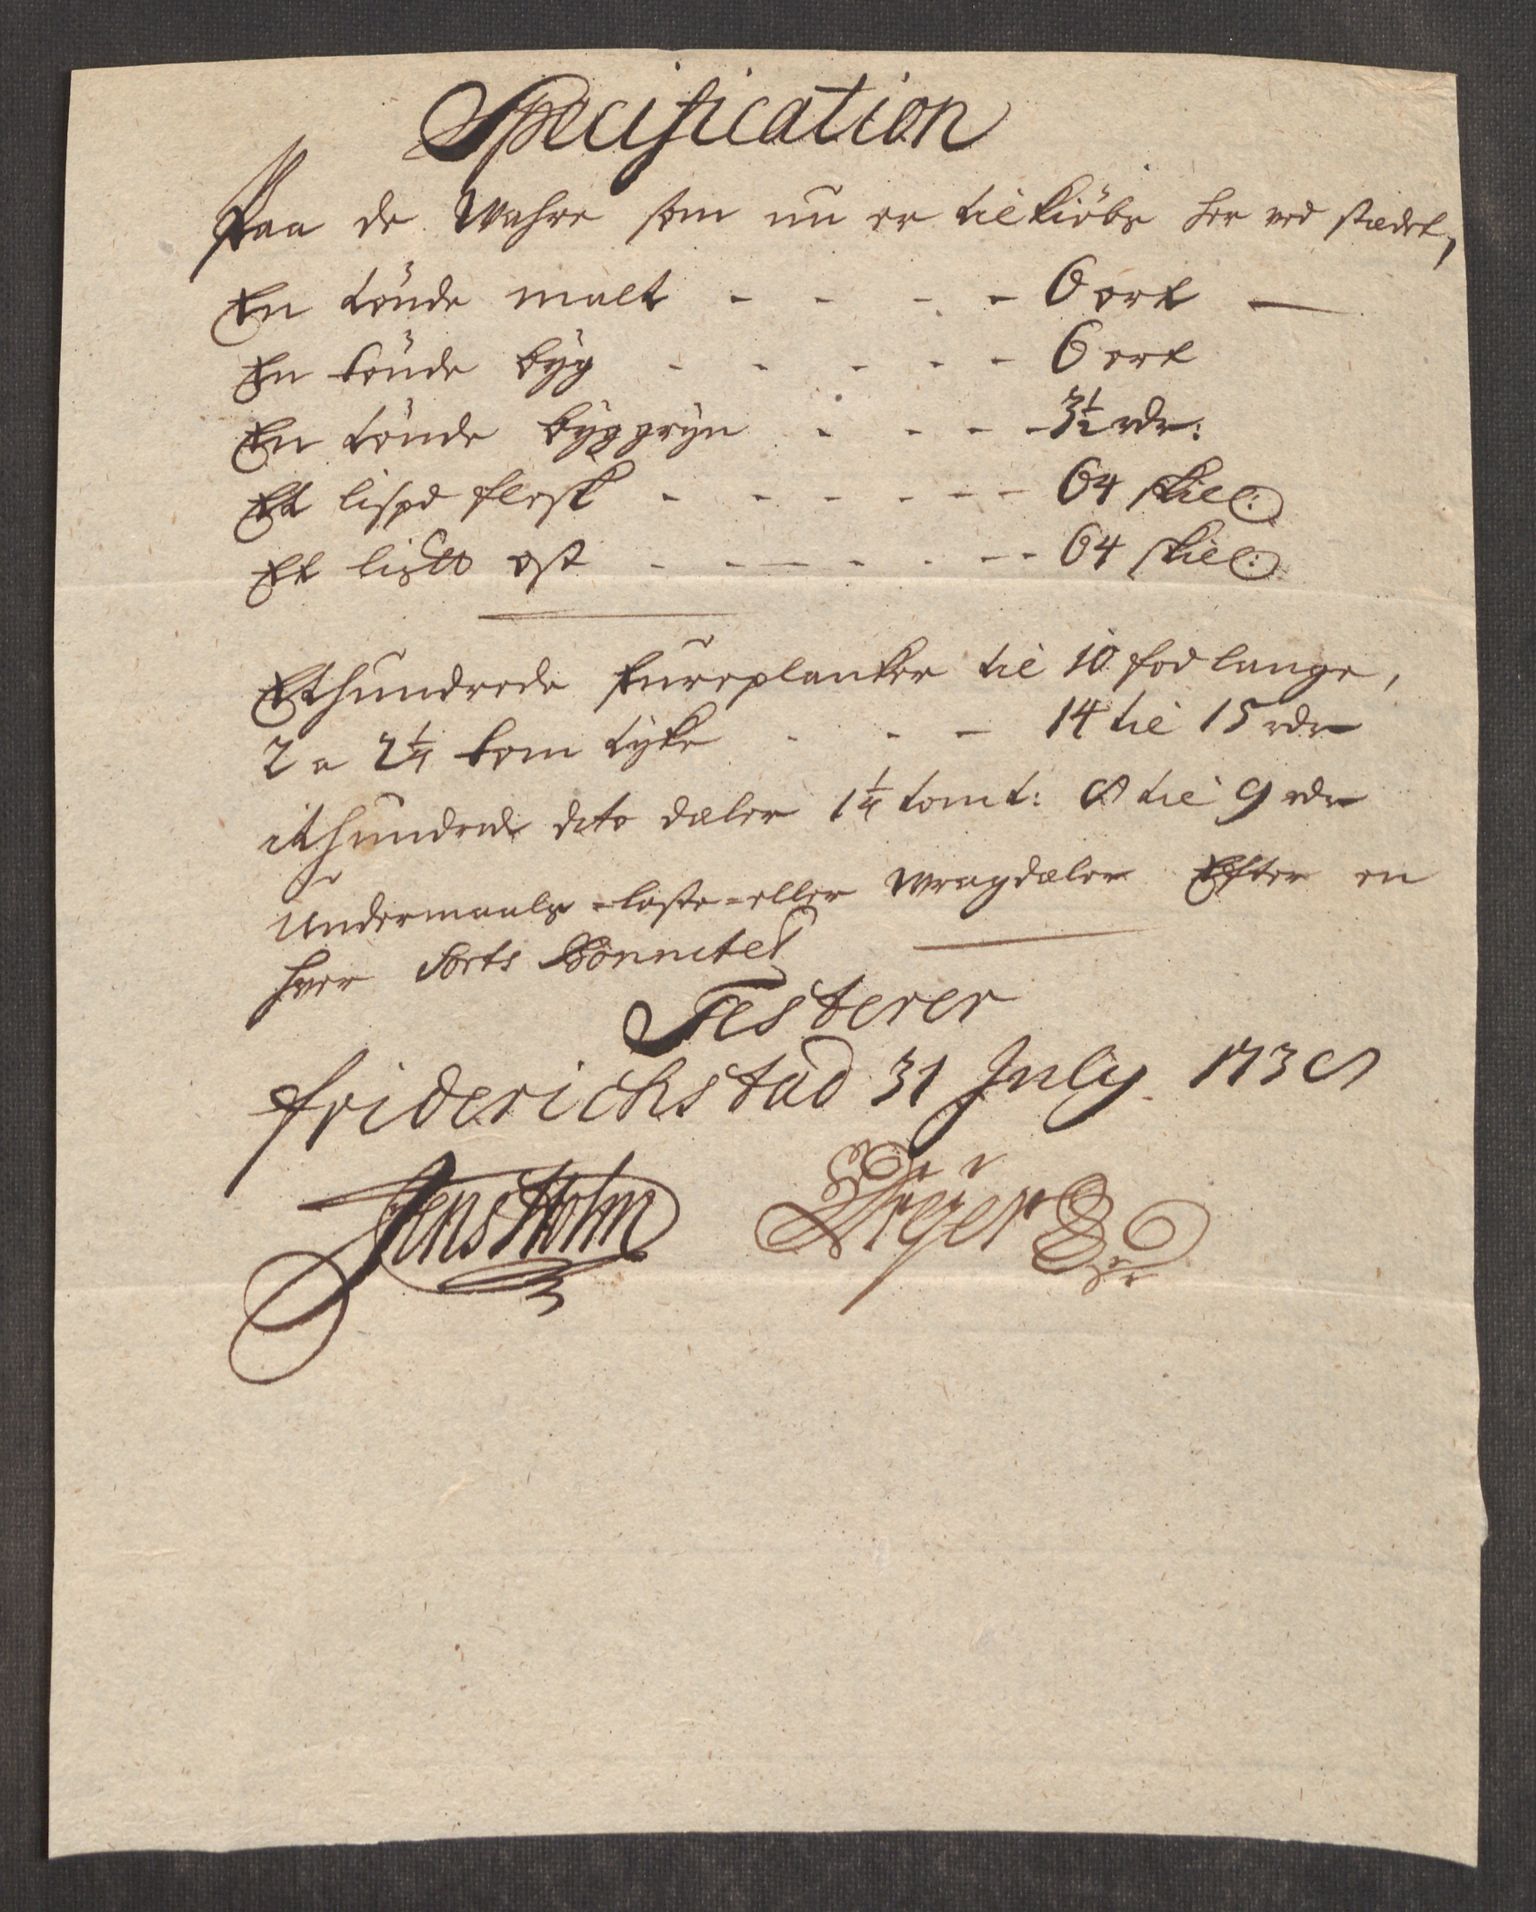 Specification
Paa de Wahre som nu er til kiöbs her ved stædet,
En tönde malt - - - - 6 ort —
En tönde byg - - - - - 6 ort
En tönde byggryn - - - - 3½ rdr:
Et lispd flesk - - - - - - 64 skil:
Et lis℔ ost - - - - - - 64 skil:
Ethundrede fureplanker til 10 fod lange,
2 a 2¼ tom tyke - - - 14 til 15 rdr
ithundrede dito dæler 1¼ tomt: 8 til 9 rdr
Undermaals - laste - eller wragdæler Efter en
hver sorts Bonnitet
Testerer
friderichstad 31 July 1738
Jens Holm